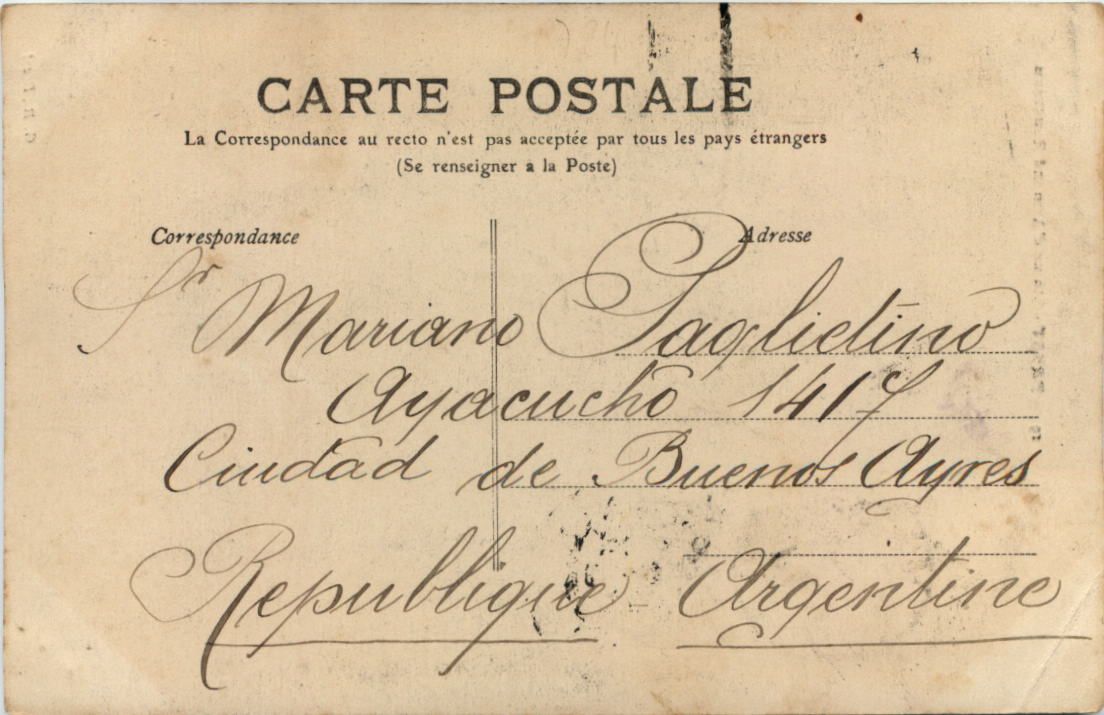 CARTE POSTALE
La Correspondance au recto n'est pas acceptée par tous les pays étrangers
(Se renseigner a la Poste)
Correspondance
Adresse
Sr Mariano Paglietino
Ayacucho 1417
Ciudad de Buenos Ayres
Republique Argentine